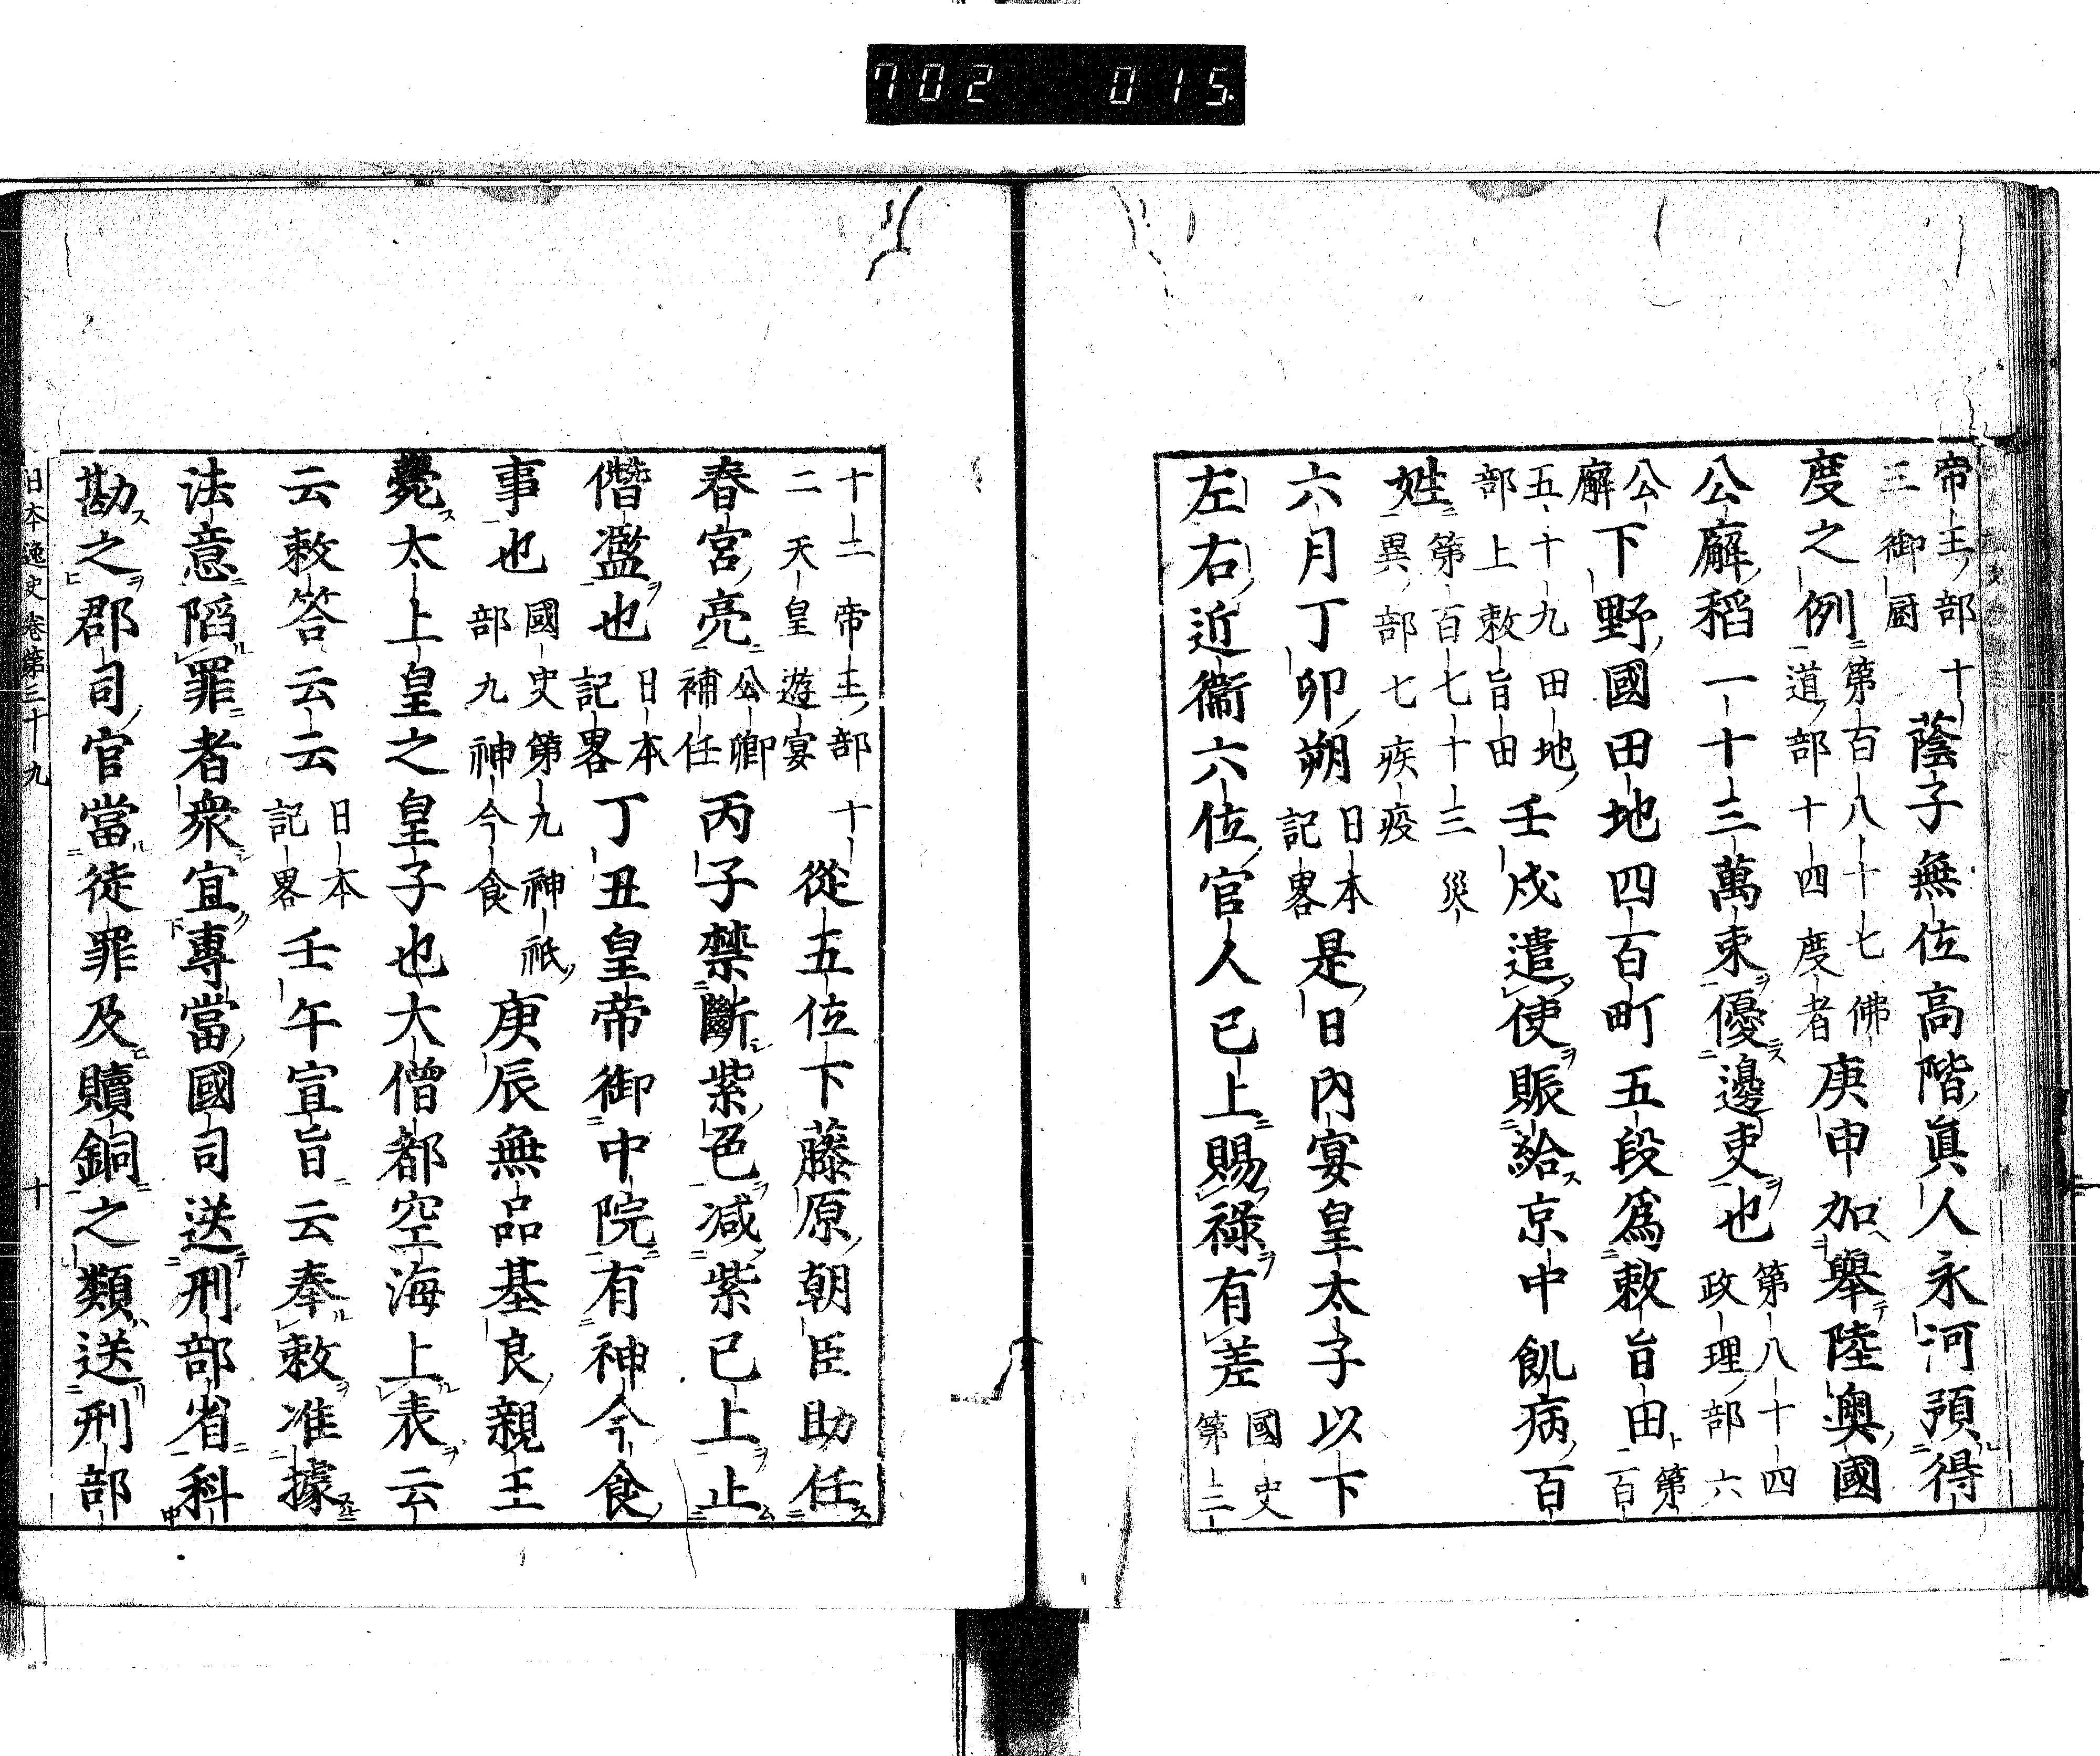 702 015
帝王部十
三御厨
蔭子無位高階眞人永河預得
度之例
第百八十七佛
道部十四度者
庚申加舉陸奥國
公廨稻一十三萬束優邊吏也
第八十四
政理部六
公
廨
下野國田地四百町五段爲敕旨田
第
一百
五十九田地
部上敕旨田
壬戌遣使賑給京中飢病百
姓
第百七十三災
異部七疾疫
六月丁卯朔
日本
記畧
是日内宴皇太子以下
左右近衞六位官人已上賜祿有差
國史
第二
十二帝王部十
二天皇遊宴
從五位下藤原朝臣助任
春宮亮
公卿
補任
丙子禁斷紫色减紫已上止
僭濫也
日本
記畧
丁丑皇帝御中院有神今食
事也
國史第九神祇
部九神今食
庚辰無品基良親王
薨太上皇之皇子也大僧都空海上表云
云敕答云云
日本
記畧
壬午宣旨云奉敕准據
法意陷罪者衆宜專當國司送刑部省科
勘之郡司官當徒罪及贖銅之類送刑部
日本逸史卷第三十九 十